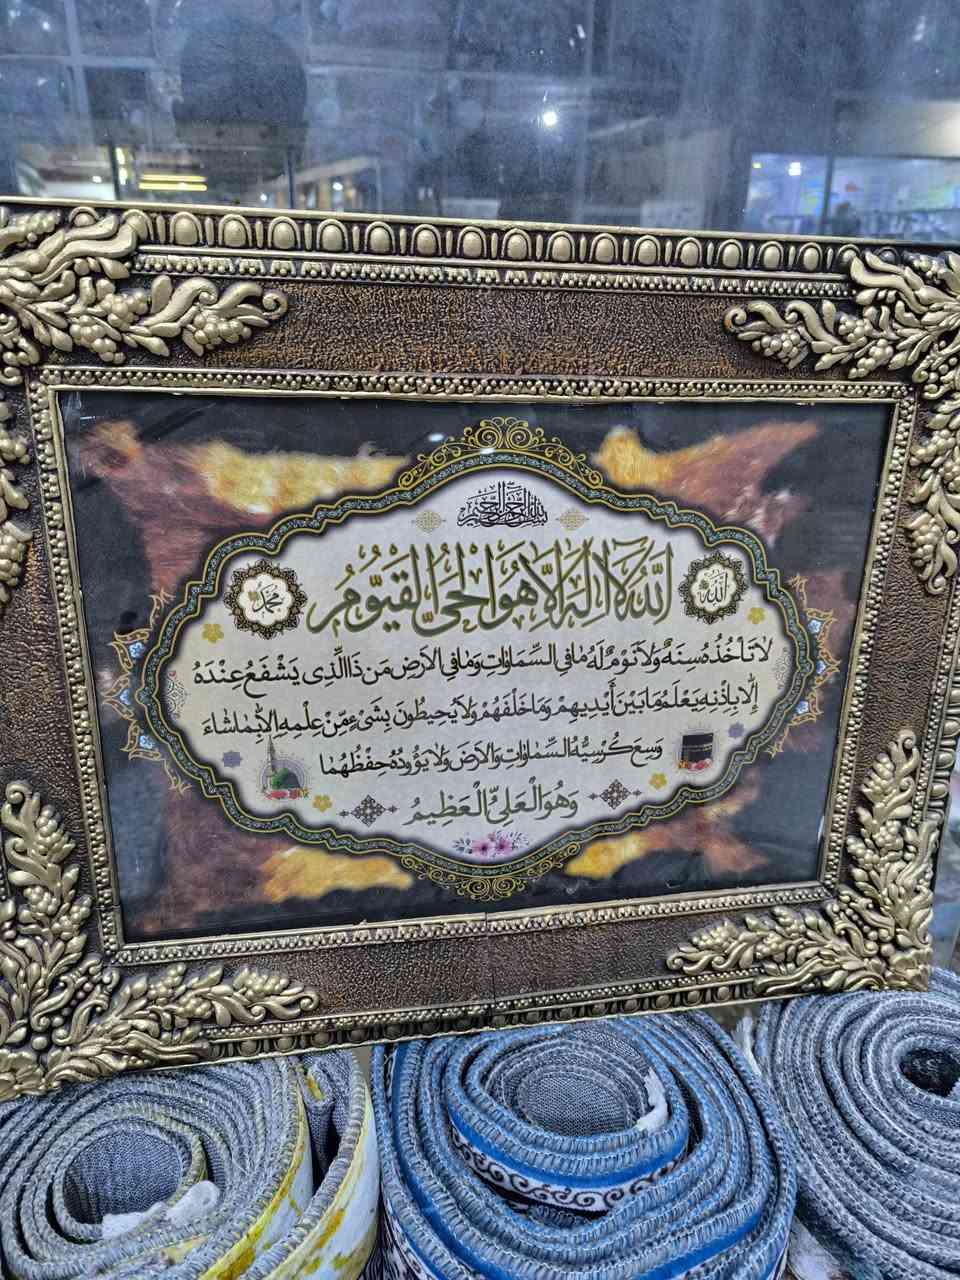 بسم الله الرحمن الرحيم
اللّٰهُ لَا اِلٰهَ اِلَّا هُوَ الْحَيُّ الْقَيُّومُ
الله
محمد
لَا تَأْخُذُهُ سِنَةٌ وَلَا نَوْمٌ لَهُ مَا فِي السَّمَاوَاتِ وَمَا فِي الْاَرْضِ مَنْ ذَا الَّذِي يَشْفَعُ عِنْدَهُ
اِلَّا بِاِذْنِهِ يَعْلَمُ مَا بَيْنَ أَيْدِيهِمْ وَمَا خَلْفَهُمْ وَلَا يُحِيطُونَ بِشَيْءٍ مِّنْ عِلْمِهِ اِلَّا بِمَا شَاءَ
وَسِعَ كُرْسِيُّهُ السَّمَاوَاتِ وَالْاَرْضَ وَلَا يَؤُودُهُ حِفْظُهُمَا
وَهُوَ الْعَلِيُّ الْعَظِيمُ